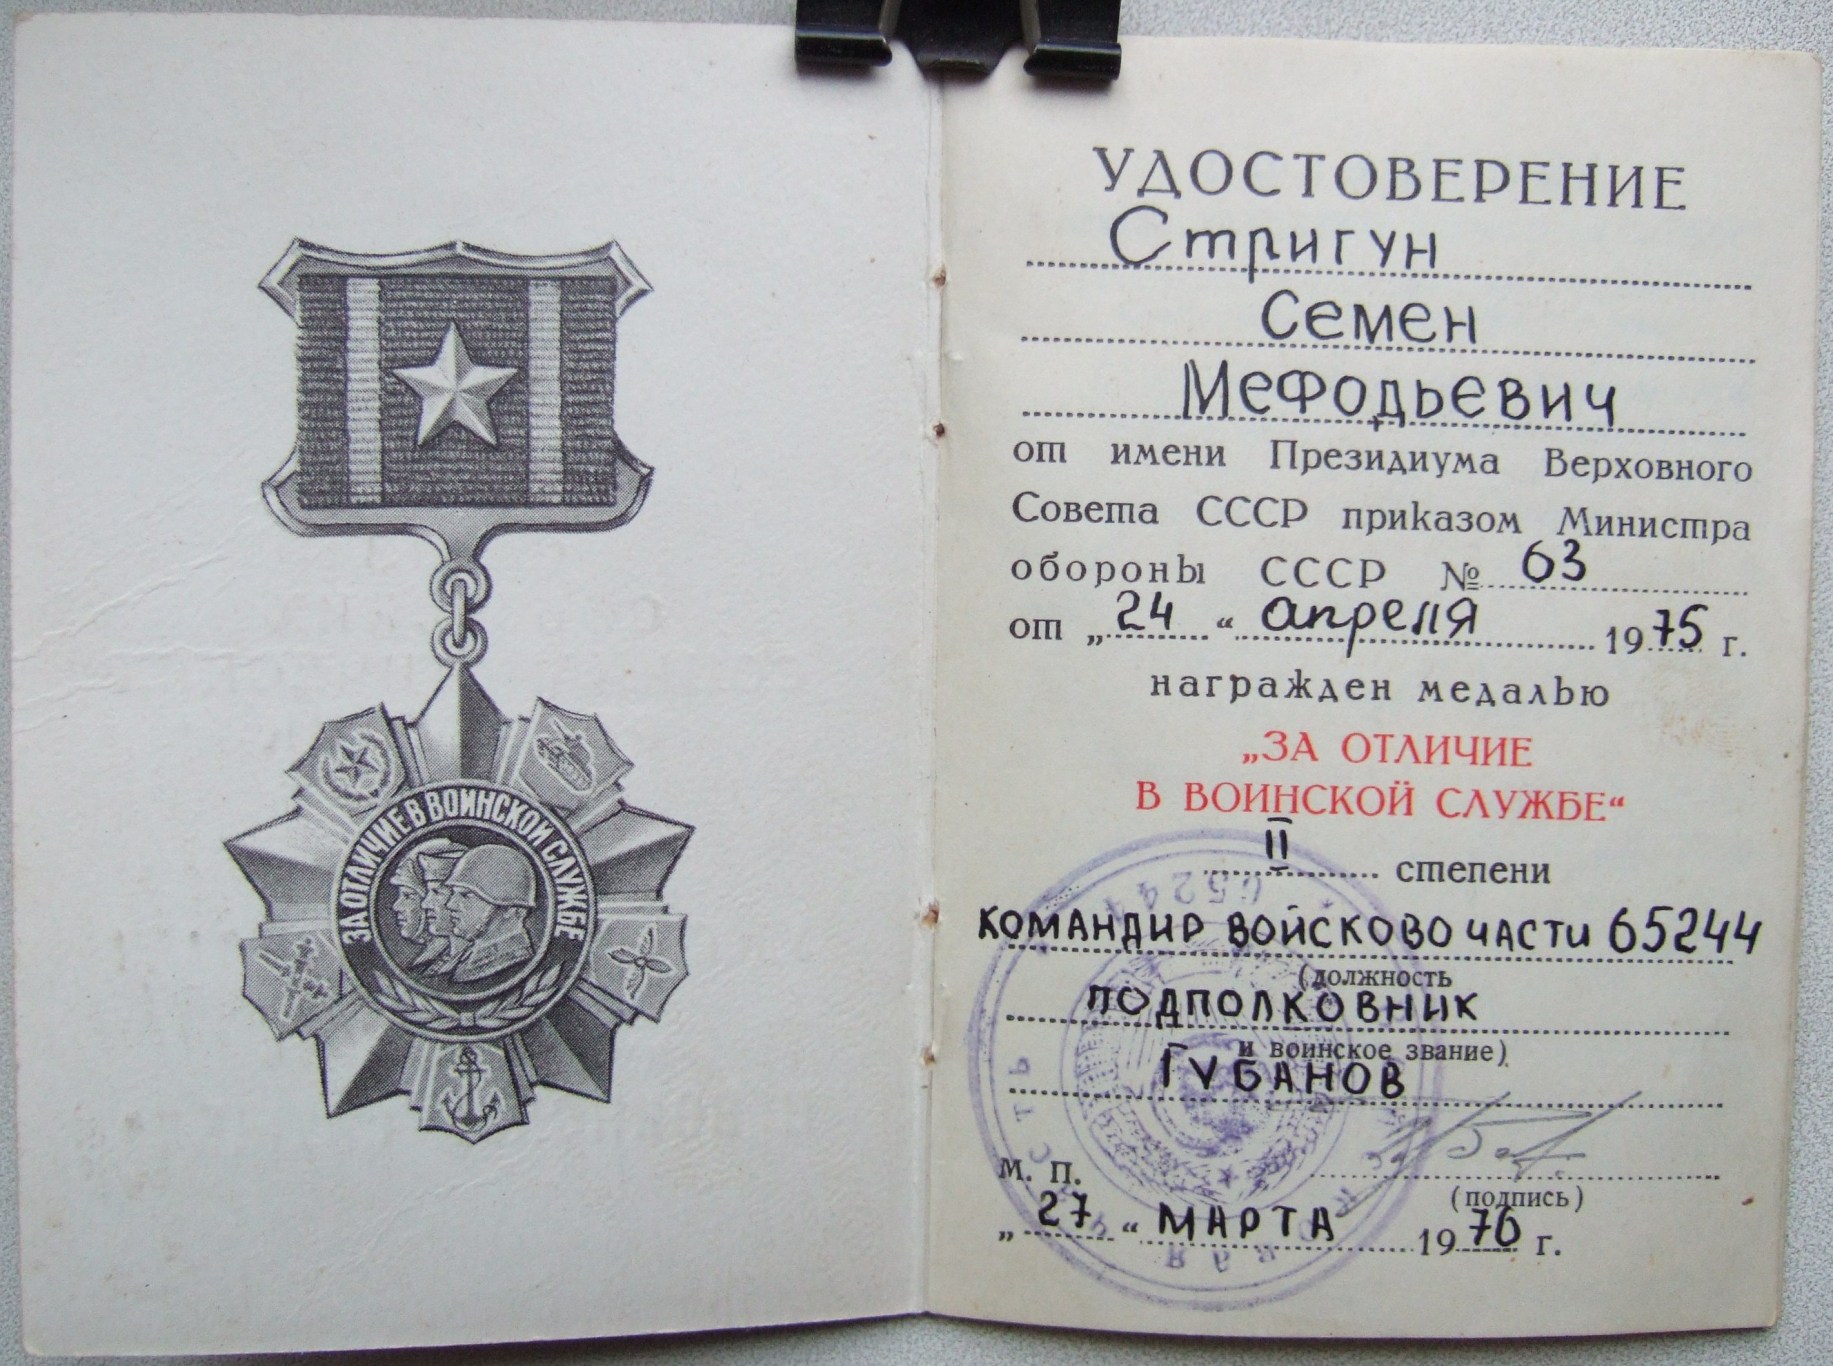 ЗА ОТЛИЧИЕ В ВОИНСКОЙ СЛУЖБЕ
УДОСТОВЕРЕНИЕ
Стригун
Семен
Мефодьевич
от имени Президиума Верховного
Совета СССР приказом Министра
обороны СССР № 63
от „24“ апреля 1975 г.
награжден медалью
„ЗА ОТЛИЧИЕ
В ВОИНСКОЙ СЛУЖБЕ“
II степени
КОМАНДИР ВОЙСКОВО ЧАСТИ 65244
(должность
ПОДПОЛКОВНИК
и воинское звание)
ГУБАНОВ
М. П.
(подпись)
„27“ МАРТА 1976 г.